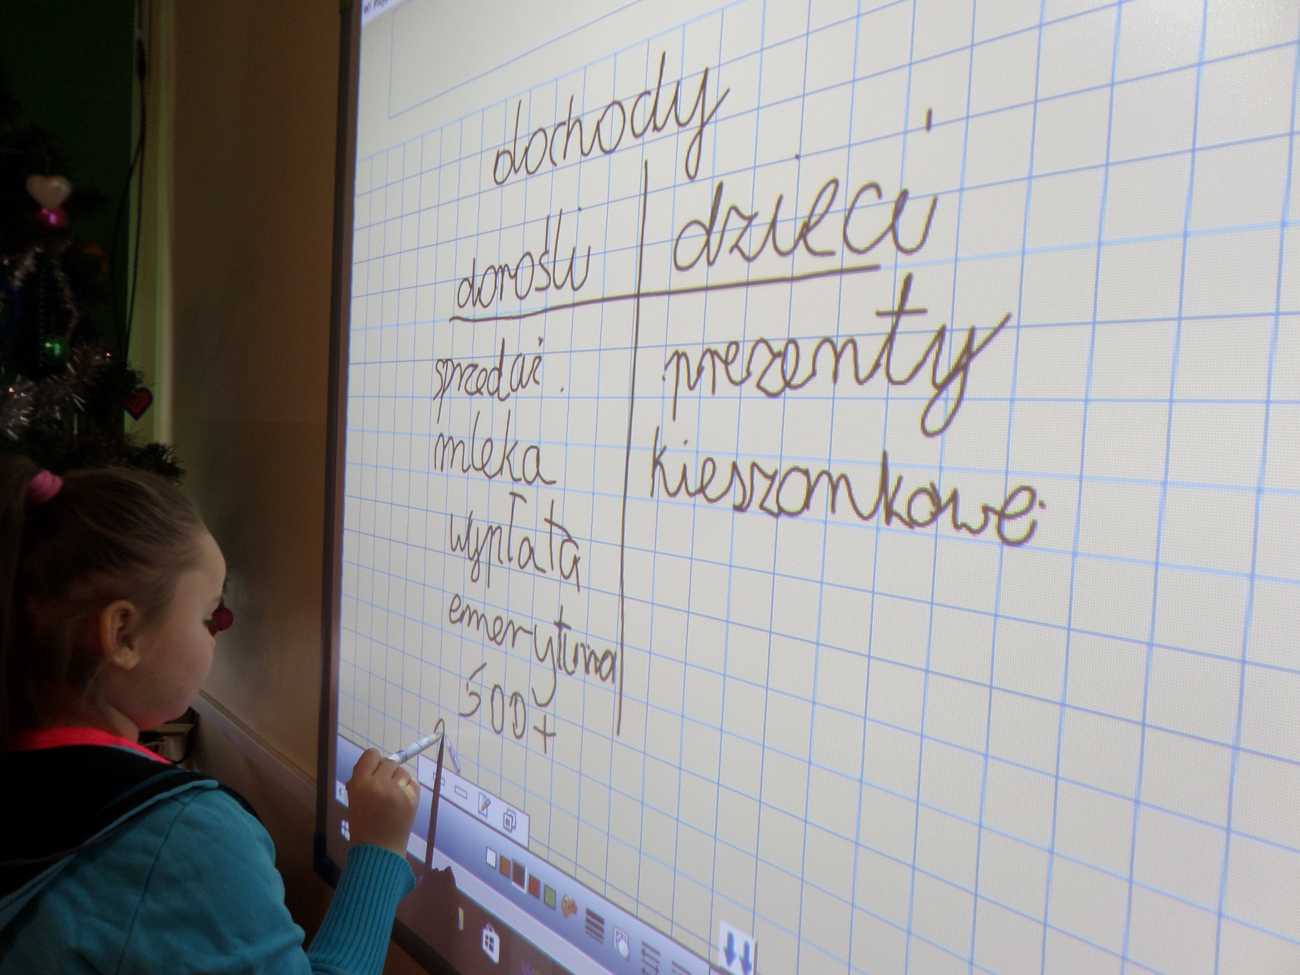 dochody
dorośli dzieci
sprzedaż prezenty
mleka kieszonkowe
wypłata
emerytura
500+